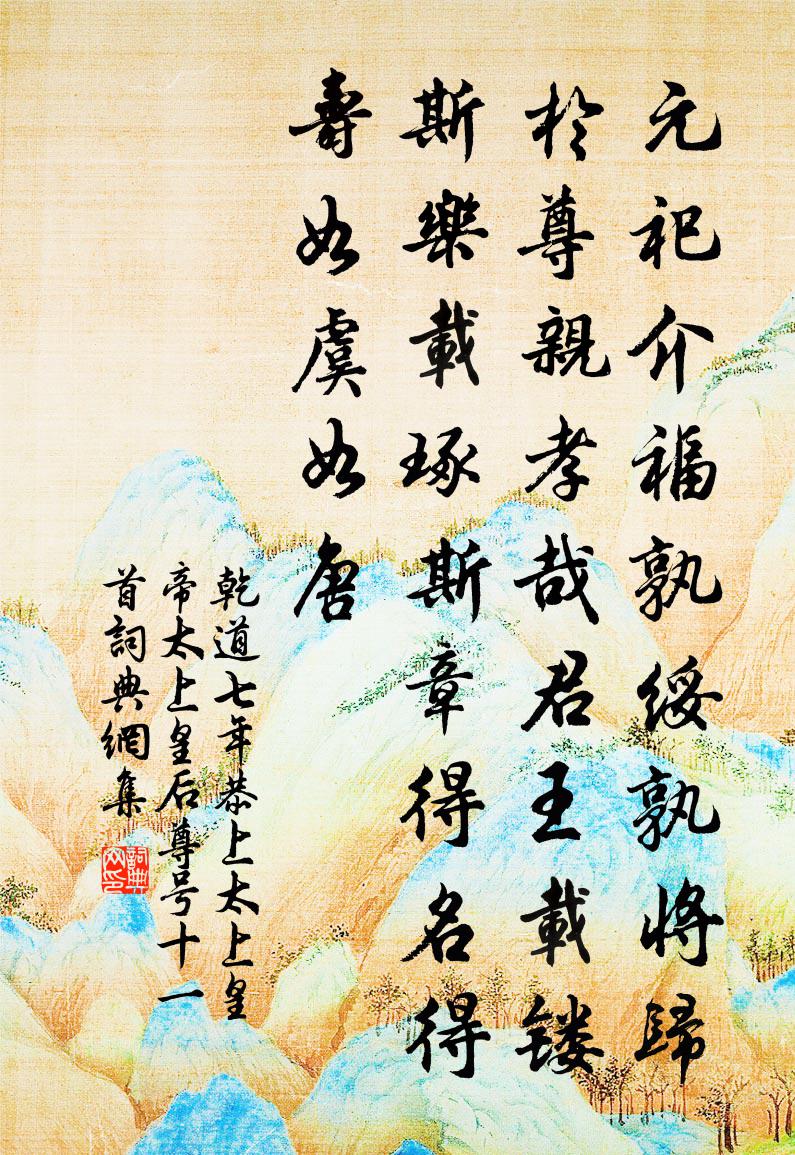 元祀介福孰绥孰將歸
於尊親孝哉君王載镂
斯樂載琢斯章得名得
壽如虞如唐
乾道七年恭上太上皇
帝太上皇后尊号十一
首詞典網集
詞典
网印